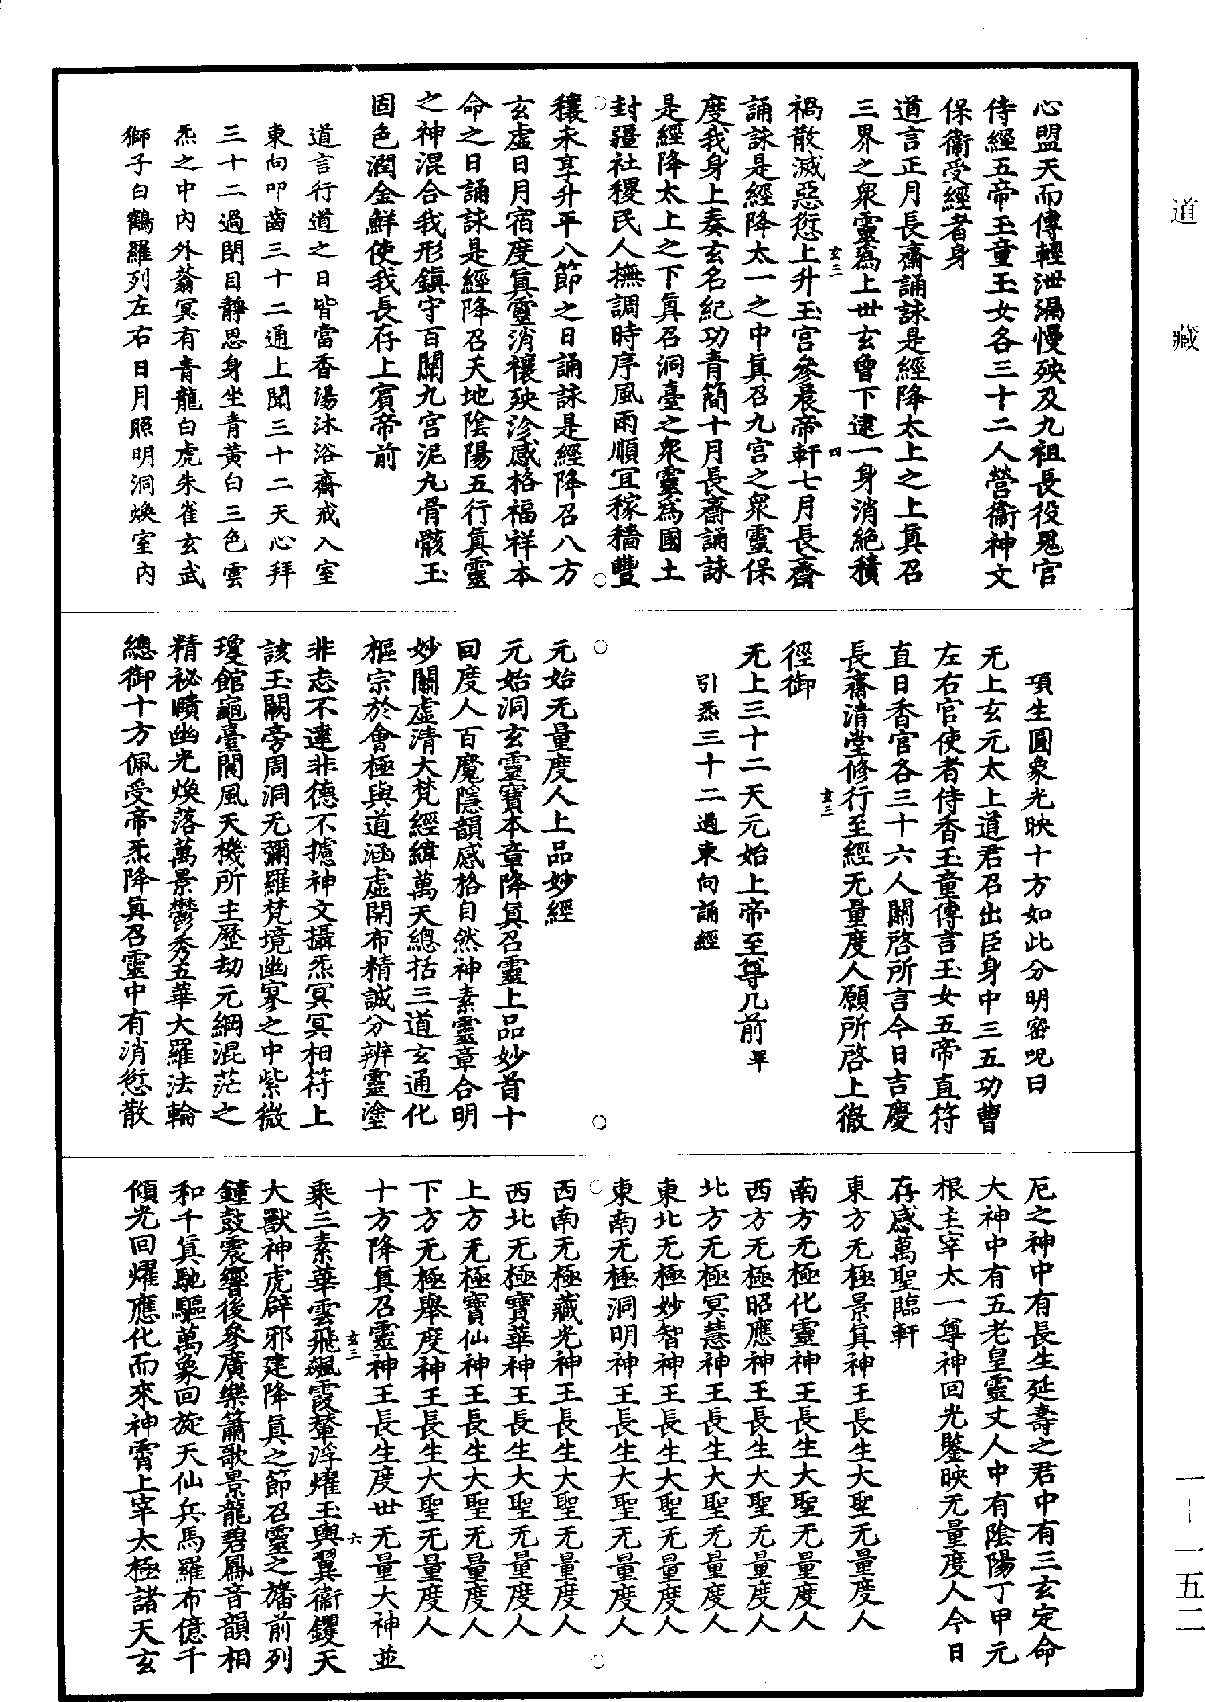 道藏
心盟天而傳輕泄漏慢殃及九祖長役鬼官
侍經五帝玉童玉女各三十二人營衞神文
保衞受經者身
道言正月長齋誦詠是經降太上之上眞召
三界之衆靈爲上世玄曾下逮一身消絶積
玄三
四
禍散滅惡愆上升玉宮參晨帝軒七月長齋
誦詠是經降太一之中眞召九宮之衆靈保
度我身上奏玄名紀功青簡十月長齋誦詠
是經降太上之下眞召洞臺之衆靈爲國土
封疆社稷民人撫調時序風雨順宜稼穡豐
穰永享升平八節之日誦詠是經降召八方
玄虛日月宿度眞靈消禳殃沴感格福祥本
命之日誦詠是經降召天地陰陽五行眞靈
之神混合我形鎮守百關九宮泥丸骨骸玉
固色潤金鮮使我長存上賓帝前
道言行道之日皆當香湯沐浴齋戒入室
東向叩齒三十二通上聞三十二天心拜
三十二過閉目靜思身坐青黃白三色雲
炁之中內外蓊冥有青龍白虎朱雀玄武
獅子白鶴羅列左右日月照明洞煥室內
項生圓象光映十方如此分明密呪曰
无上玄元太上道君召出臣身中三五功曹
左右官使者侍香玉童傳言玉女五帝直符
直日香官各三十六人關啓所言今日吉慶
長齋清堂修行至經无量度人願所啓上徹
玄三
徑御
无上三十二天元始上帝至尊几前畢
引炁三十二過東向誦經
元始无量度人上品妙經
元始洞玄靈寶本章降眞召靈上品妙首十
回度人百魔隱韻感格自然神素靈章合明
妙關虛清大梵經緯萬天總括三道玄通化
樞宗於會極與道涵虛開布精誠分辨靈塗
非志不達非德不攄神文攝炁冥冥相符上
該玉闕旁周洞无彌羅梵境幽寥之中紫微
瓊館龜臺閬風天機所主歷劫元綱混茫之
精祕賾幽光煥落萬景鬱秀五華大羅法輪
總御十方佩受帝炁降眞召靈中有消愆散
厄之神中有長生延壽之君中有三玄定命
大神中有五老皇靈丈人中有陰陽丁甲元
根主宰太一尊神回光鑒映无量度人今日
存感萬聖臨軒
東方无極景眞神王長生大聖无量度人
南方无極化靈神王長生大聖无量度人
西方无極昭應神王長生大聖无量度人
北方无極冥慧神王長生大聖无量度人
東北无極妙智神王長生大聖无量度人
東南无極洞明神王長生大聖无量度人
西南无極藏光神王長生大聖无量度人
西北无極寶華神王長生大聖无量度人
上方无極寶仙神王長生大聖无量度人
下方无極舉度神王長生大聖无量度人
十方降眞召靈神王長生度世无量大神並
玄三
六
乘三素華雲飛飈霞輦浮燿玉輿翼衞鑊天
大獸神虎辟邪建降眞之節召靈之旛前列
鐘鼓震響後參廣樂簫歌景龍碧鳳音韻相
和千眞馳驅萬象回旋天仙兵馬羅布億千
傾光回燿應化而來神霄上宰太極諸天玄
一–一五二